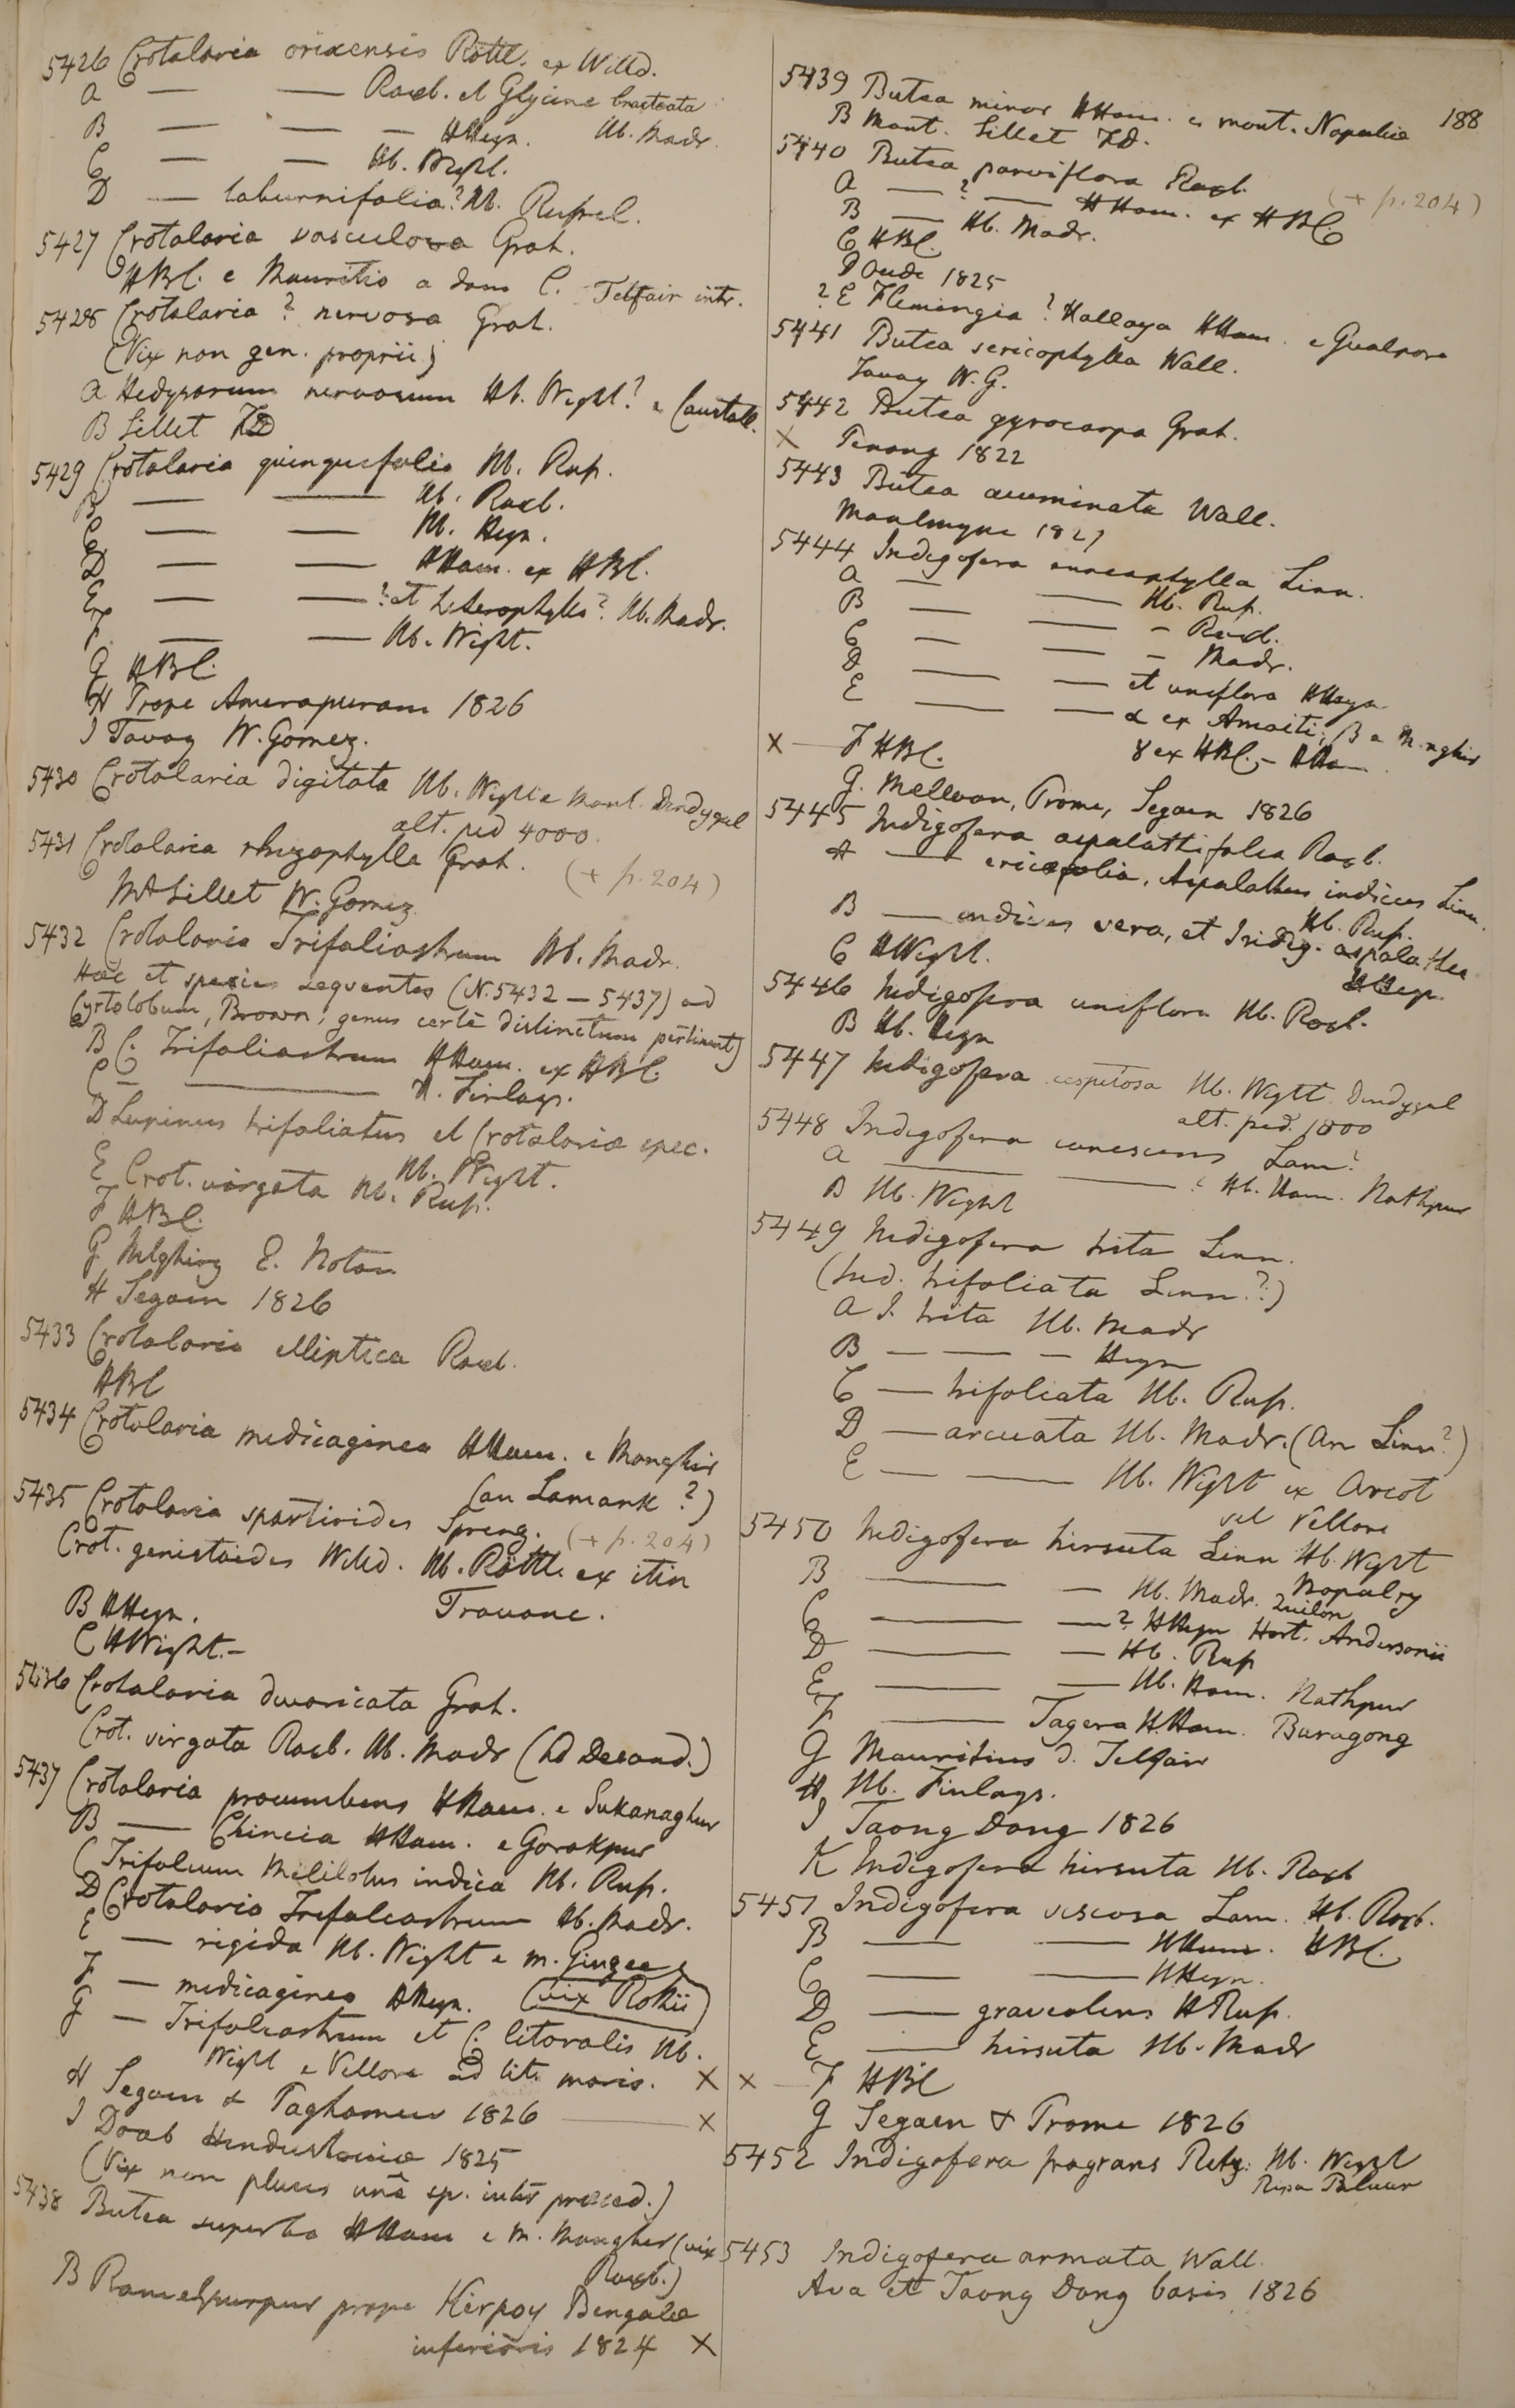 5426 Crotalaria orixensis Röttl. ex Willd.
a — — Roxb. et Glycine bracteata
B — — — HHeyn. Hb. Madr.
C — — Hb. Wight.
D — laburnifolia? Hb. Russel.
5427 Crotalaria vasculosa Grah.
HBC. e Mauritio a dom C. Telfair intr.
5428 Crotalaria ? nervosa Grah.
(Vix non gen. proprii)
a Hedysarum nervosum Hb. Wight? e Courtall.
B Sillet FD
5429 Crotalaria quinquefolia Hb. Rup.
B — — Hb. Roxb.
C — — Hb. Heyn.
D — — HHam. ex HBC.
E — — ? et heterophylla? Hb. Madr.
F — — Hb. Wight.
G HBC.
H Prope Amerapuram 1826
I Tavoy W. Gomez.
5430 Crotalaria digitata Hb. Wight e Mont. Dindygul
alt. ped 4000.
5431 Crotalaria rhizophylla Grah. (+ p. 204)
Mt Sillet W. Gomez
5432 Crotalaria Trifoliastrum Hb. Madr.
Haec et species sequentes (N. 5432 — 5437) ad
Cyrtolobum, Brown; genus certè distinctum pertinent)
B C. Trifoliastrum HHam. ex HBC.
C — — H. Finlays.
D Lupinus trifoliatus et Crotalariae spec.
Hb. Wight.
E Crot. virgata Hb. Rup.
F HBC.
G Mlghirg E. Noton
H Segaen 1826
5433 Crotalaria elliptica Roxb.
HBC
5434 Crotalaria medicaginea HHam. e Monghir
(an Lamark ?)
5435 Crotalaria spartioides Spreng. (+ p. 204)
Crot. genistoides Willd. Hb. Röttl. ex itin
Travanc.
B HHeyn.
C HWight.—
5436 Crotalaria divaricata Grah.
Crot. virgata Roxb. Hb. Madr (hd Decand.)
5437 Crotalaria procumbens HHam. e Sukanaghur
B — Chincia HHam. e Gorakpur
C Trifolium Melilotus indica Hb. Rup.
D Crotalaria Trifoliastrum Hb. Madr.
E — rigida Hb. Wight e m. Gingee
F — medicaginea HHeyn. (vix Rothii)
G — Trifoliastrum et C. litoralis Hb.
Wight e Vellore ad lit. maris. X
H Segaen & Taghamew 1826 — X
I Doab Hindustaniae 1825
(Vix non plures unâ sp. inter praeced.)
5438 Butea superba HHam e M. Mongher (vix
Roxb.)
B Ramelpurpur prope Kirpoy Bengalae
inferioris 1824 X
188
5439 Butea minor HHam. e mont. Nopaliae
B Mont. Sillet FD.
5440 Butea parviflora Roxb. (+ p. 204)
a — ? — HHam. ex HBC
B — Hb. Madr.
C HBC.
D Oude 1825
? E Flemingia ? Kallaya HHam. e Gualpara
5441 Butea sericophylla Wall.
Tavoy W. G.
5442 Butea gyrocarpa Grah.
X Penang 1822
5443 Butea acuminata Wall.
Moulmyne 1827
5444 Indigofera enneaphylla Linn.
a — — Hb. Rup.
B — — - Roxb.
C — — - Madr.
D — — et uniflora HHeyn.
E — — α ex Amaiti; β e Monghir
γ ex HBC. - HHam
X — F HBC.
G. Melloon, Prome, Segaen 1826
5445 Indigofera aspalathifolia Roxb.
A — ericifolia, Aspalathus indicus Linn.
Hb. Rup.
B — indicus vera, et Indig. aspalathea
HHeyn.
C HWight.
5446 Indigofera uniflora Hb. Roxb.
B Hb. Heyn
5447 Indigofera cespitosa Hb. Wight. Dindygul
alt. ped. 1800
5448 Indigofera canescens Lam?
a — — ? Hb. Ham. Nathpur
B Hb. Wight
5449 Indigofera trita Linn.
(Ind. trifoliata Linn.?)
a I. trita Hb. Madr
B — — — Heyn
C — trifoliata Hb. Rup.
D — arcuata Hb. Madr. (An Linn?)
E — — Hb. Wight ex Arcot
vel Vellore
5450 Indigofera hirsuta Linn Hb. Wight
Nopalry
B — — Hb. Madr. Quilon
C — — ? HHeyn Hort. Andersonii
D — — Hb. Rup
E — — Hb. Ham. Nathpur
F — Tagera HHam. Baragong
G Mauritius D. Telfair
H Hb. Finlays.
I Taong Dong 1826
K Indigofera hirsuta Hb. Roxb
5451 Indigofera viscosa Lam. Hb. Roxb.
B — — HHam. HBC.
C — — HHeyn.
D — graveolens HRup.
E — hirsuta Hb. Madr
X — F HBC
G Segaen & Prome 1826
5452 Indigofera fragrans Retz. Hb. Wight
Ripa Paluar
5453 Indigofera armata Wall.
Ava et Taong Dong basis 1826